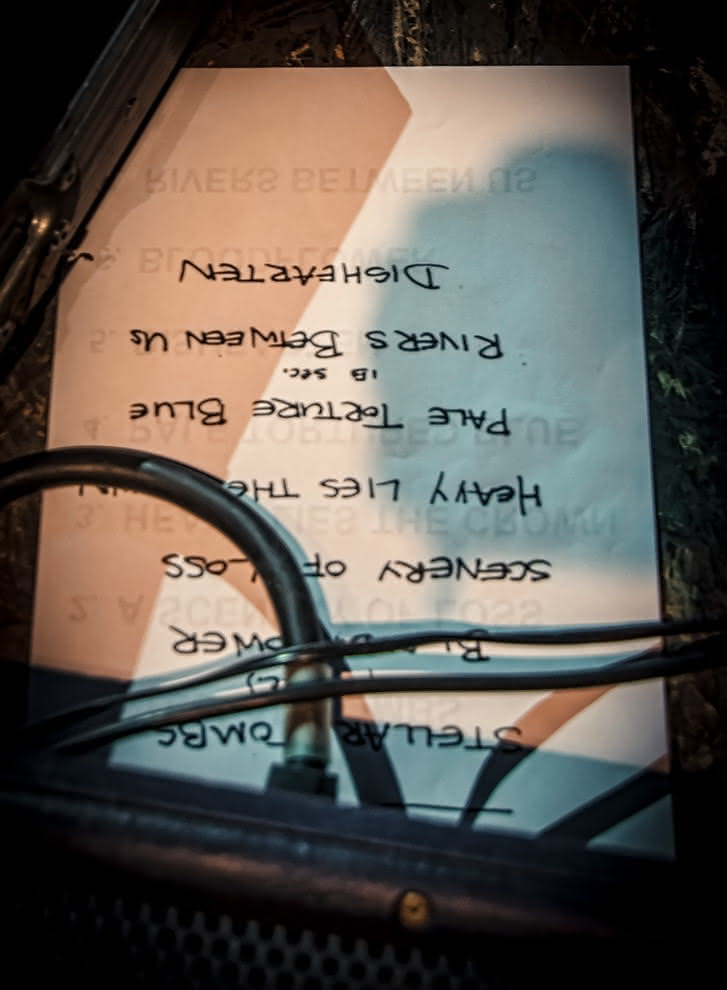 STELLAR TOMBS
SCENERY OF LOSS
HEAVY LIES THE
PALE TORTURE BLUE
18 sec.
RIVERS BETWEEN US
DISHEARTEN
2. A SCENERY OF LOSS
3. HEAVY LIES THE CROWN
4. PALE TORTURED BLUE
5.
6. BLOODFLOWER
RIVERS BETWEEN US